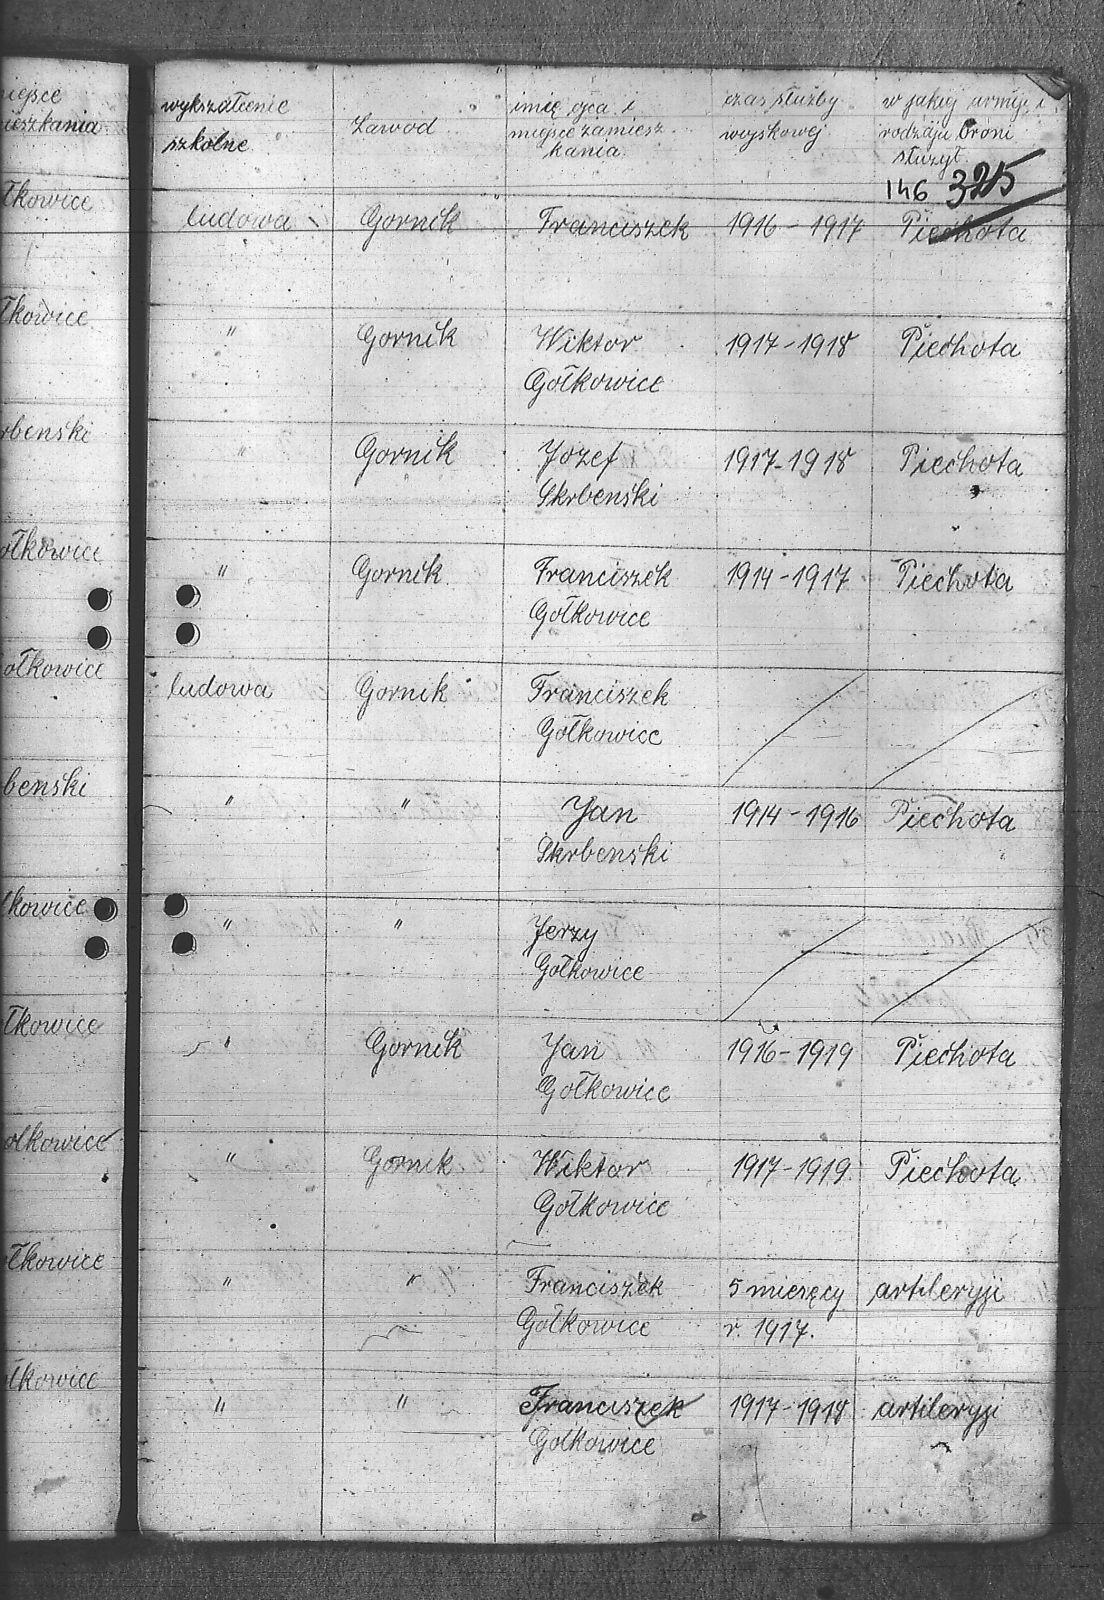 miejsce
mieszkania
wykszałcenie
szkolne
Zawod
imię ojca i
miejsce zamiesz
kania.
czas służby
wojskowej
w jakiej armji i
rodzaju broni
służył.
146 325
łkowice
ludowa Gornik Franciszek 1916 - 1917 Piechota
łkowice
" Gornik Wiktor 1917-1918 Piechota
Gołkowice
rbenski
" Gornik Jozef 1917-1918 Piechota
Skrbenski
ołkowice
" Gornik Franciszek 1914-1917 Piechota
Gołkowice
ołkowice
ludowa Gornik Franciszek
Gołkowice
benski
" " Jan 1914-1916 Piechota
Skrbenski
łkowice
" " Jerzy
Gołkowice
łkowice
" Gornik Jan 1916-1919 Piechota
Gołkowice
ołkowice
" Gornik Wiktor 1917-1919. Piechota
Gołkowice
ołkowice
" " Franciszek 5 miesęcy artileryji
Gołkowice r. 1917.
ołkowice
" " Franciszek 1917-1918 artileryji
Gołkowice